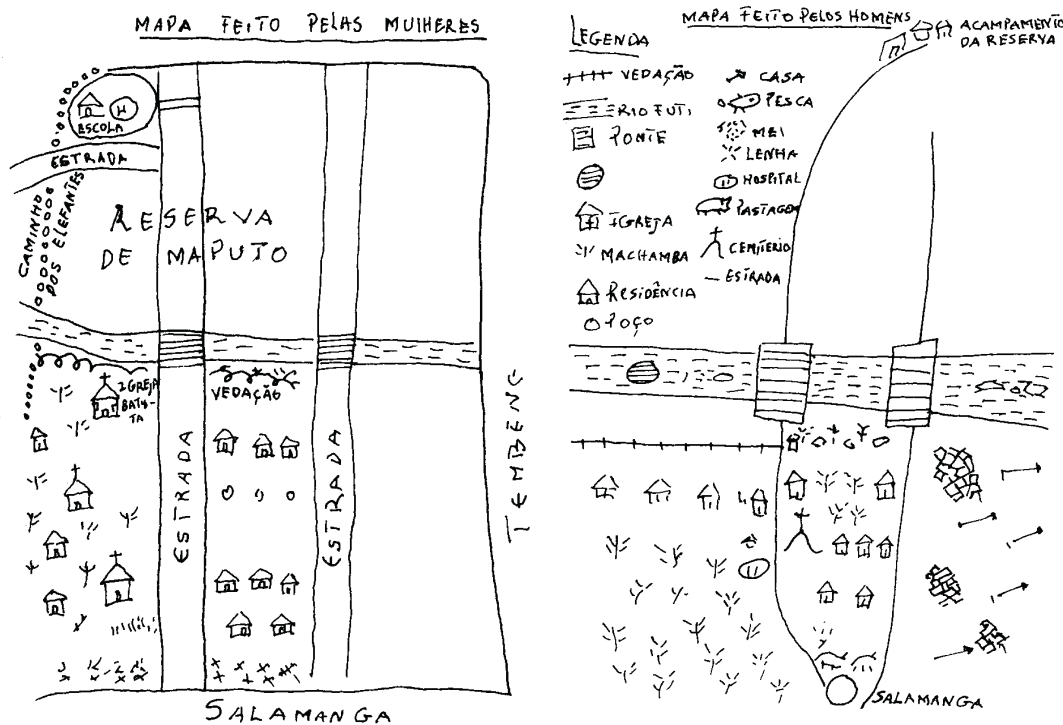 MAPA FEITO PELAS MULHERES
ESCOLA
H
ESTRADA
CAMINHO
DOS ELEFANTES
RESERVA
DE MAPUTO
IGREJA
BATISTA
VEDAÇÃO
ESTRADA
ESTRADA
TEMBENG
SALAMANGA
MAPA FEITO PELOS HOMENS
ACAMPAMENTO
DA RESERVA
LEGENDA
VEDAÇÃO
RIO FUTI
PONTE
IGREJA
MACHAMBA
RESIDÊNCIA
POÇO
CASA
PESCA
MEI
LENHA
HOSPITAL
PASTAGEM
CEMITERIO
ESTRADA
SALAMANGA